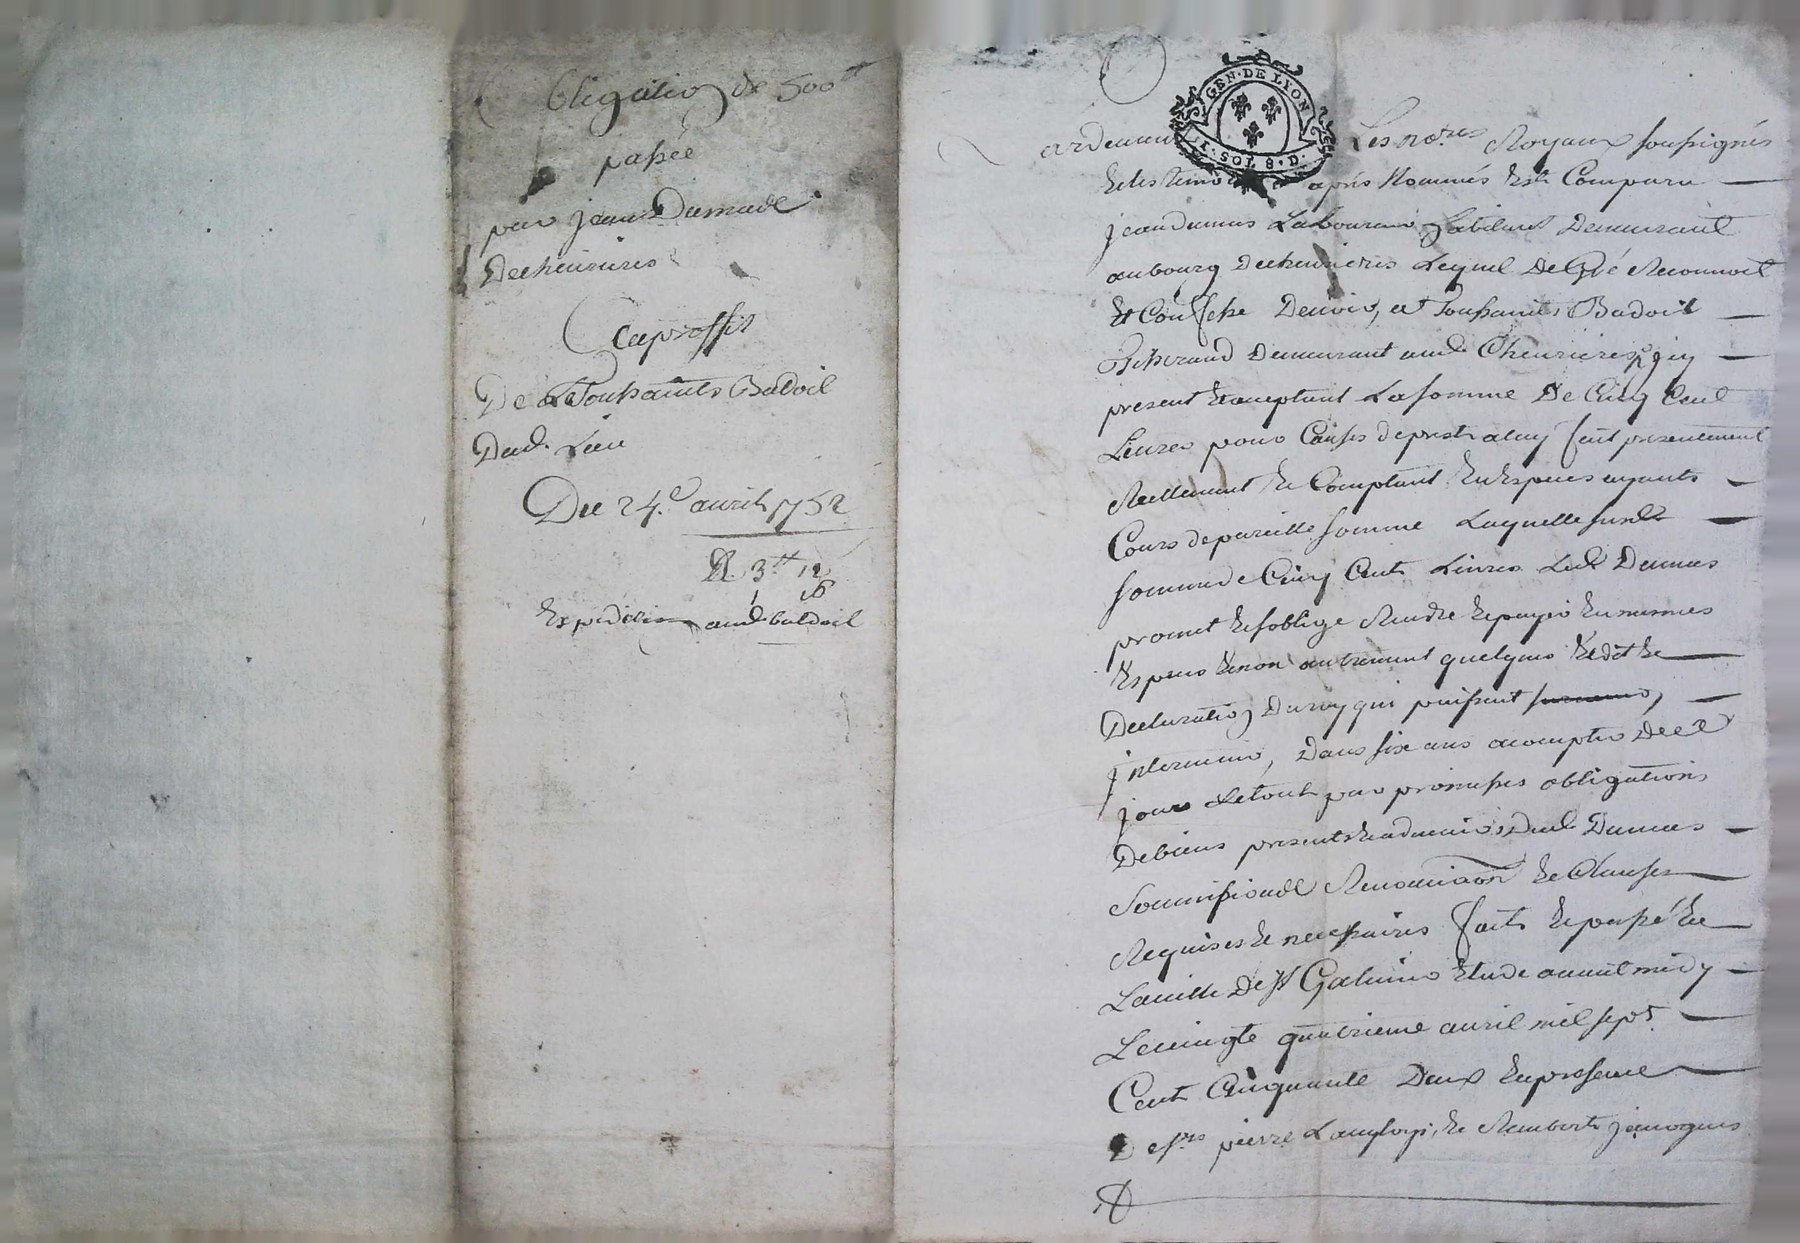 Obligation de 500ᵗᵗ
passée
par jean Dumas de
Decheurieres
Ca proffit
De Toussaints Badoil
Dud. Lieu
Du 24.e avril 1752
R 3ᵗᵗ 12
Expedition aud. badoil
GEN·DE LYON
I·SOL 8·D·
Pardevant Les no.res Royaux soussignés
Et les temoins aprés Nommés Est Comparu
jean dumas Laboureur habitant Demeurant
au bourg decheurieres Lequel De Gré Reconnoit
Et Confesse Devoir, a Toussaints Badoil
Tisserand Demeurant aud. Cheurieres jcy
present Et acceptant La somme De Cinq Cent
Livres pour Causes de prest a luy fait presentement
Reellement Et Comptant En Especes ayants
Cours de pareille somme Laquelle susd.
somme de Cinq Cent Livres Led. Dumas
promet Et soblige Rendre Et payer En mesmes
Especes Et non autrement quelques Edit Et
Declaration Du roy qui puissent
jntervenir, Dans six ans a compter De ce
jour Le tout par promesses obligations
De biens presents Et advenirs Dud. Dumas
Soumissions Renonciaon Et Clauses
Requises Et necessaires fait Et passé En
La ville De St Galmier Etude avant midy
Le vingte quatrieme avril mil sept
Cent Cinquante Deux En presence
De srs pierre Langlois, Et Rembert